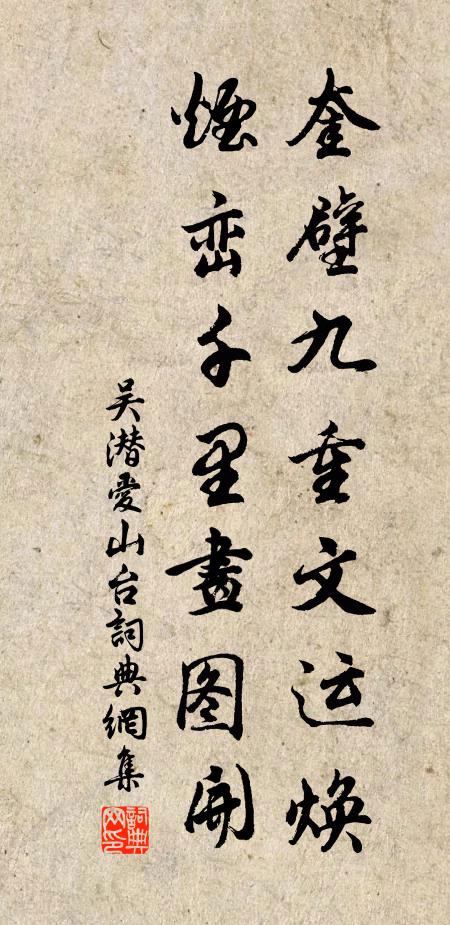 奎壁九重文运焕
烟峦千里畫图開
吴潜愛山台詞典網集
詞典网印